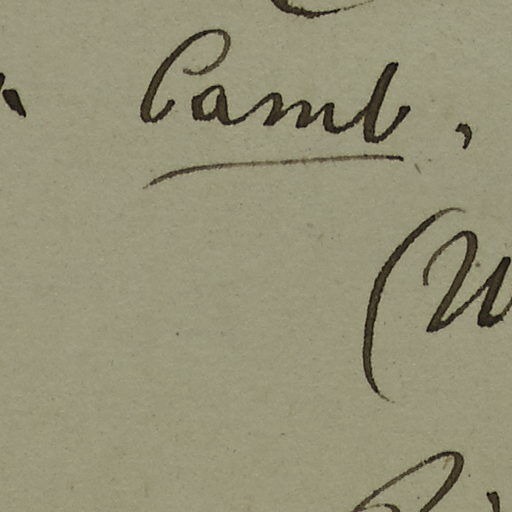 Camb,
(W